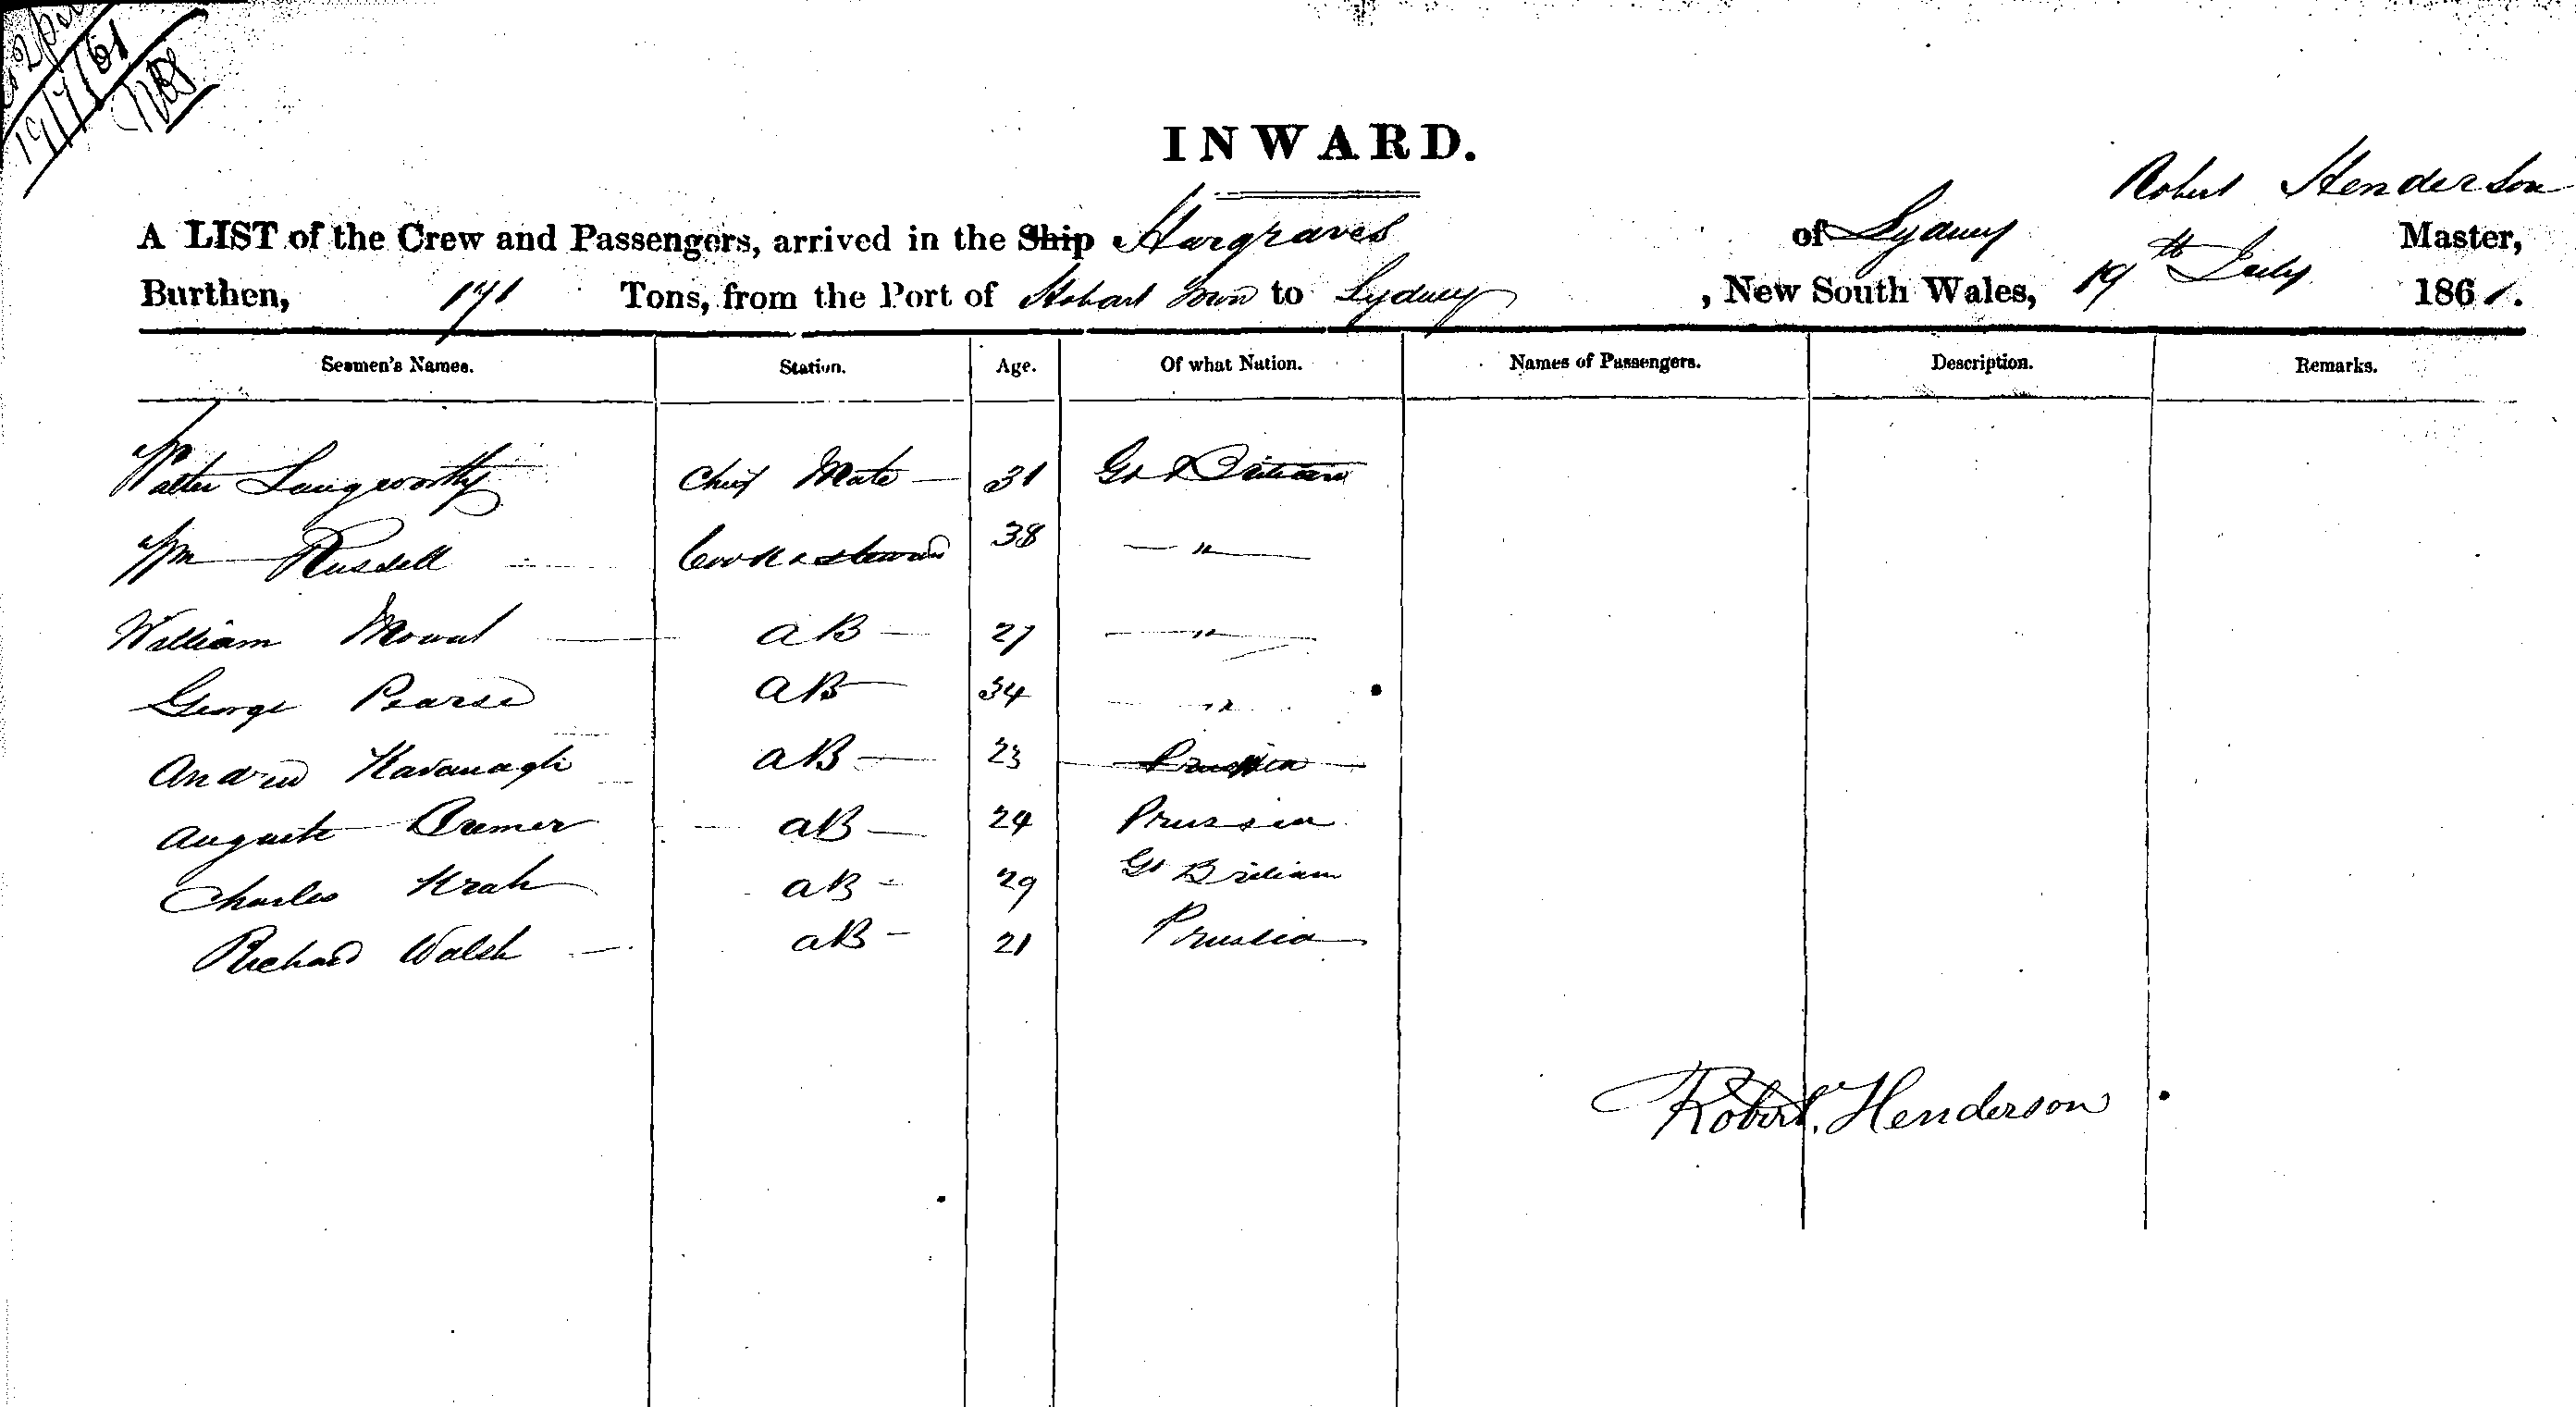 19/7/61
INWARD.
Robert Henderson
A LIST of the Crew and Passengers, arrived in the Ship Hargraves of Sydney Master,
Burthen, 171 Tons, from the Port of Hobart Town to Sydney , New South Wales, 19th July 1861.
Seamen's Names. Station. Age. Of what Nation. Names of Passengers. Description. Remarks.
Walter Langworthy Chief Mate 31 Gt Britain
Wm Russell Cook & Steward 38 "
William Mowat AB 27 "
George Pearse AB 34 "
Andrew Kavanagh AB 23 Prussia
Auguste Bremer AB 24 Prussia
Charles Krah AB 29 Gt Britain
Richard Walsh AB 21 Prussia
Robert Henderson